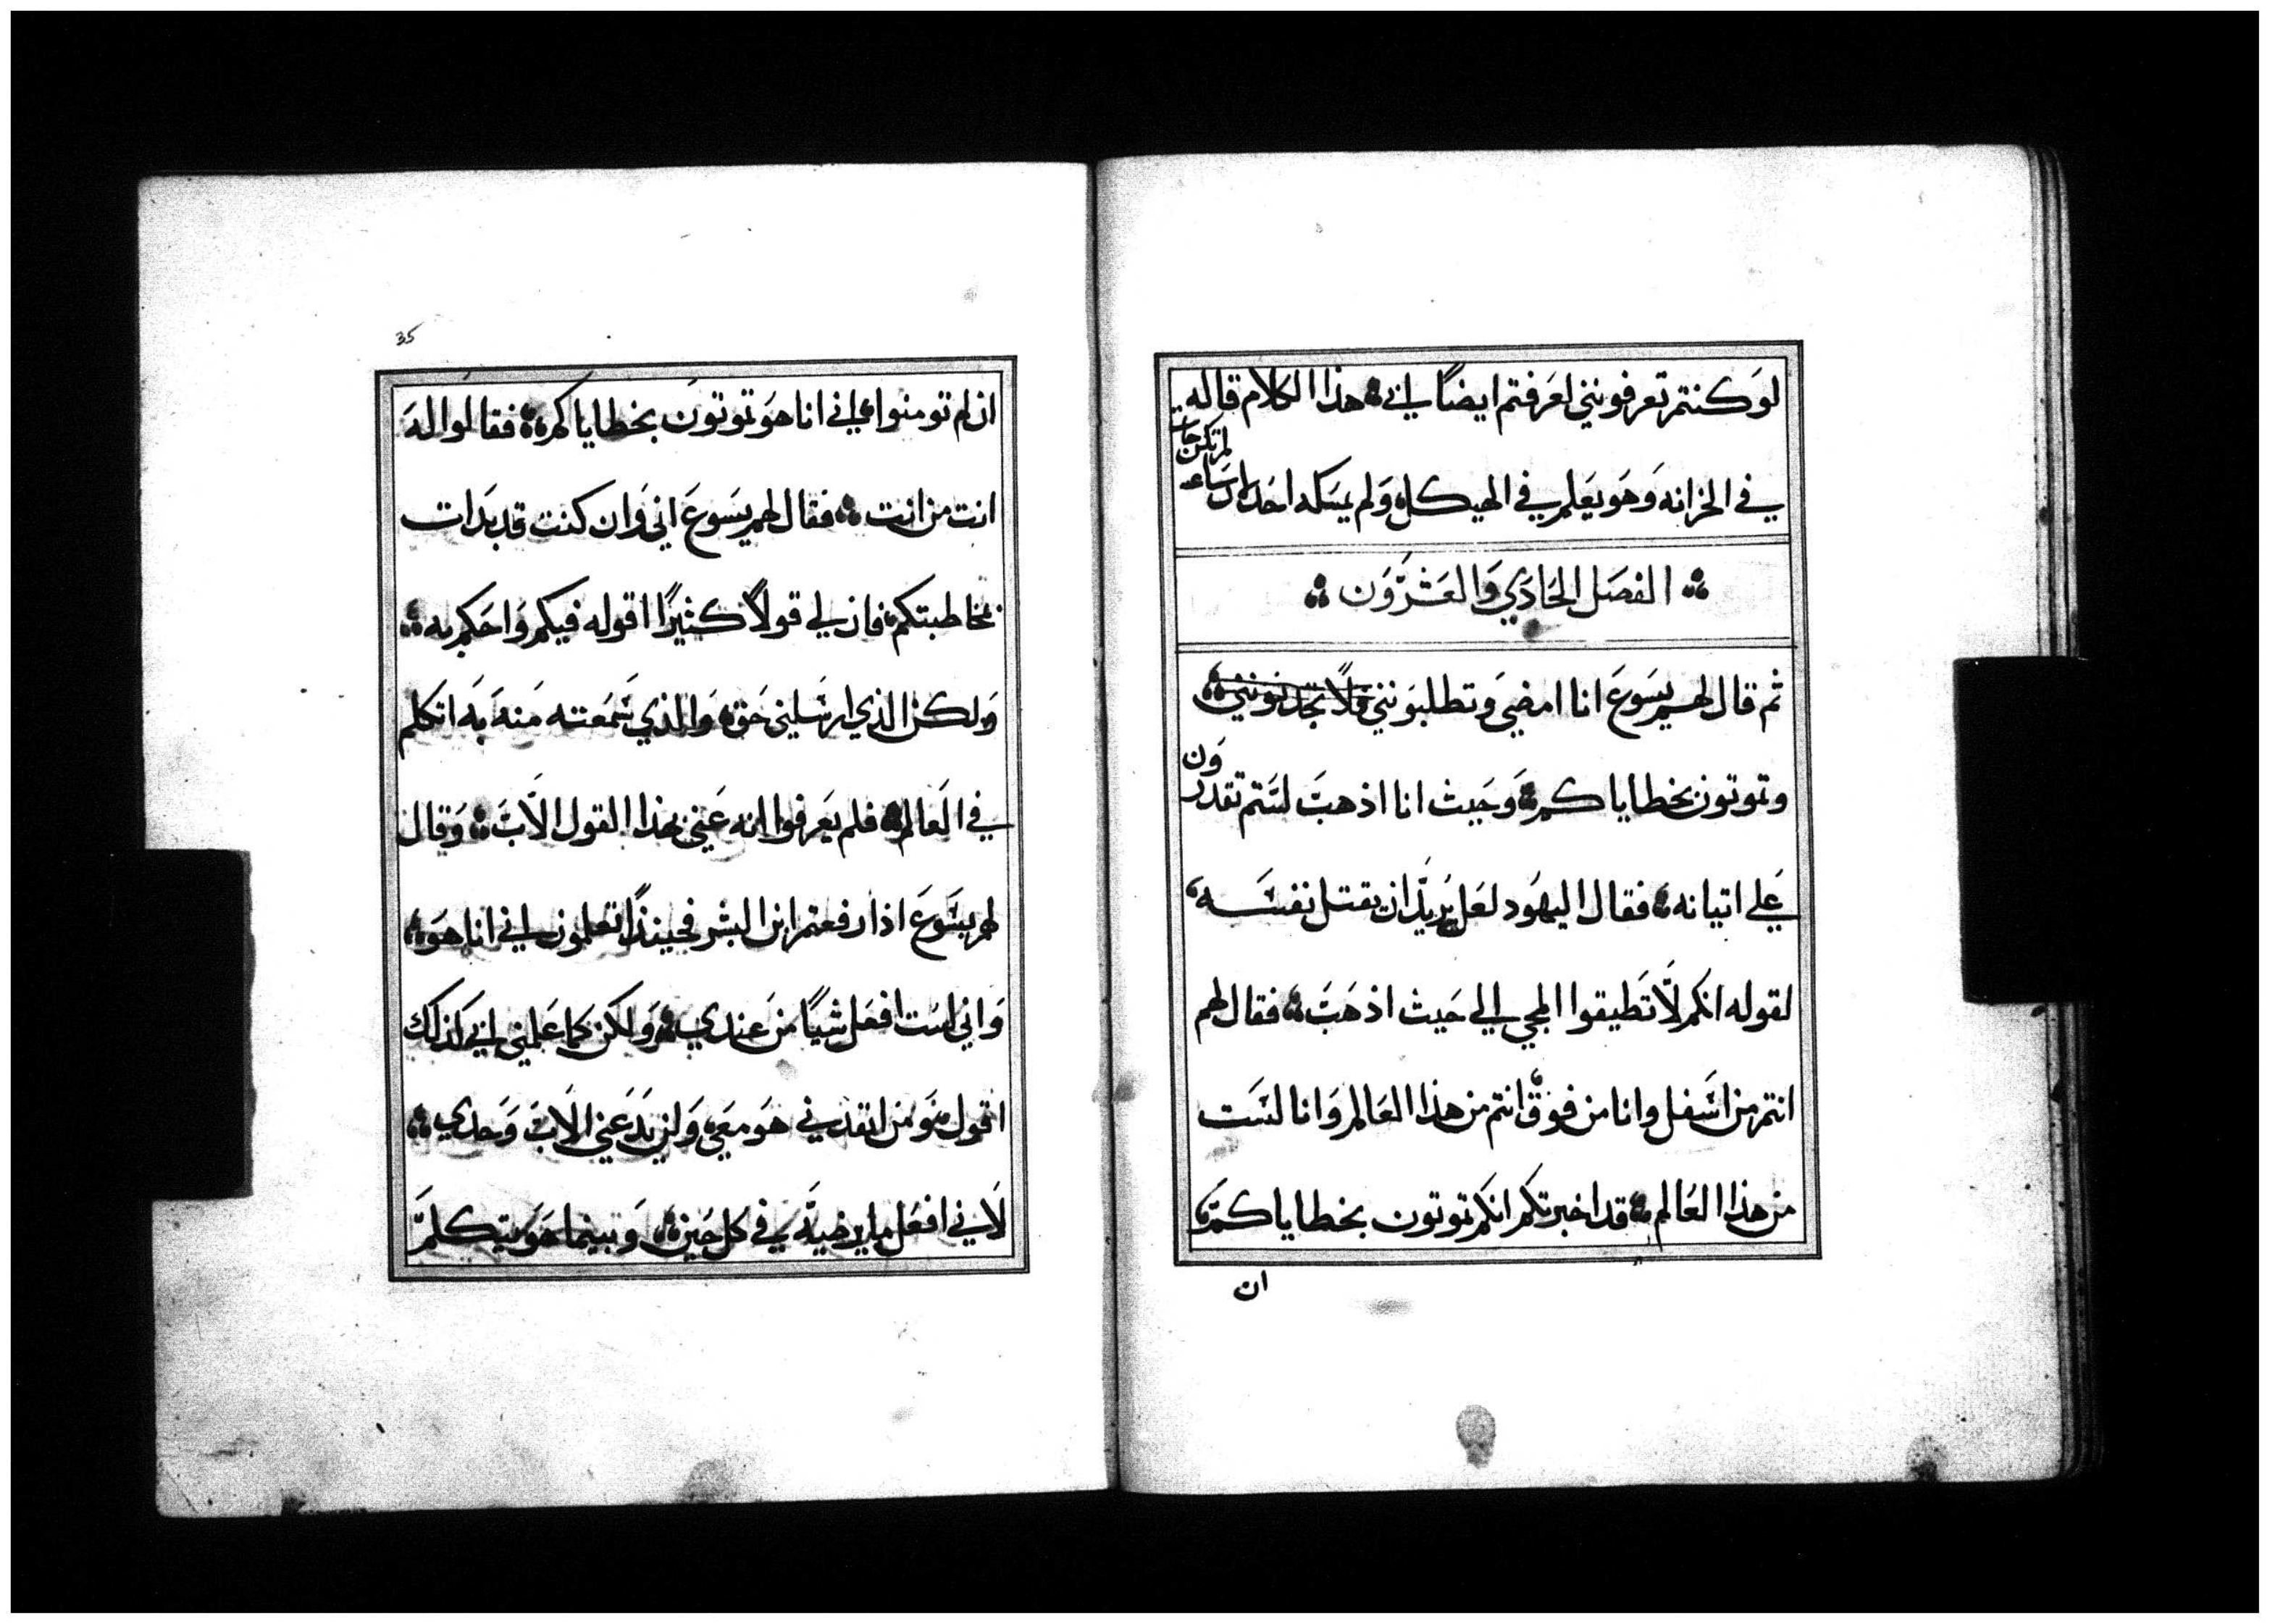 لو كنتم تعرفونني لعرفتم ايضاً ابي هذا الكلام قاله
في الخزانه وهو يعلم في الهيكل ولم يمسكه احد لان ساعته
لم تكن جات
الفصل الحادي والعشرون
ثم قال لهم يسوع انا امضي وتطلبونني فلا تجدونني
وتموتون بخطاياكم وحيث انا اذهب لستم تقدرون
علي اتيانه فقال اليهود لعل يريد ان يقتل نفسه
لقوله انكم لا تطيقوا المجي الي حيث اذهب فقال لهم
انتم من اسفل وانا من فوق انتم من هذا العالم وانا لست
من هذا العالم قد اخبرتكم انكم تموتون بخطاياكم
ان
35
ان لم تومنوا اني انا هو تموتون بخطاياكم فقالوا له
انت من انت فقال لهم يسوع اني وان كنت قد بدات
بمخاطبتكم فان لي قولاً كثيرًا اقوله فيكم واحكم به
ولكن الذي ارسلني حق والذي سمعته منه به اتكلم
في العالم فلم يعرفوا انه عني بهذا القول الاب وقال
لهم يسوع اذا رفعتم ابن البشر فحينئذًا تعلمون اني انا هو
واني لست افعل شياً من عندي ولكن كما علمني ابي كذلك
اقول ومن انفذني هو معي ولم يدعني الاب وحدي
لاني افعل ما يرضيه في كل حين وبينما هو يتكلم